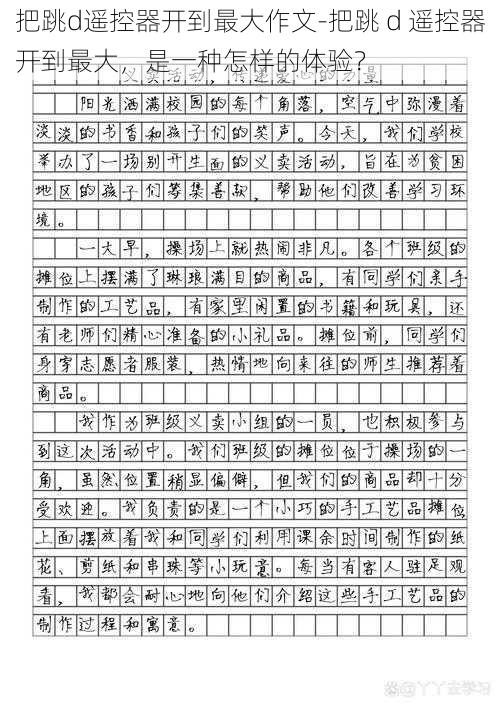 把跳d遥控器开到最大作文-把跳 d 遥控器
开到最大，是一种怎样的体验？
义卖活动，传递爱心的力量
阳光洒满校园的每个角落，空气中弥漫着
淡淡的书香和孩子们的笑声。今天，我们学校
举办了一场别开生面的义卖活动，旨在为贫困
地区的孩子们筹集善款，帮助他们改善学习环
境。
一大早，操场上就热闹非凡。各个班级的
摊位上摆满了琳琅满目的商品，有同学们亲手
制作的工艺品，有家里闲置的书籍和玩具，还
有老师们精心准备的小礼品。摊位前，同学们
身穿志愿者服装，热情地向来往的师生推荐着
商品。
我作为班级义卖小组的一员，也积极参与
到这次活动中。我们班级的摊位位于操场的一
角，虽然位置稍显偏僻，但我们的商品却十分
受欢迎。我负责的是一个小巧的手工艺品摊位
上面摆放着我和同学们利用课余时间制作的纸
花、剪纸和串珠等小玩意。每当有客人驻足观
看，我都会耐心地向他们介绍这些手工艺品的
制作过程和寓意。
@丫丫去学习